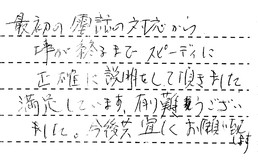 最初の電話の対応から
事が終るまでスピーディに
正確に説明をして頂きました
満足しています。有難うござい
ました。今後共宜しくお願い致
します